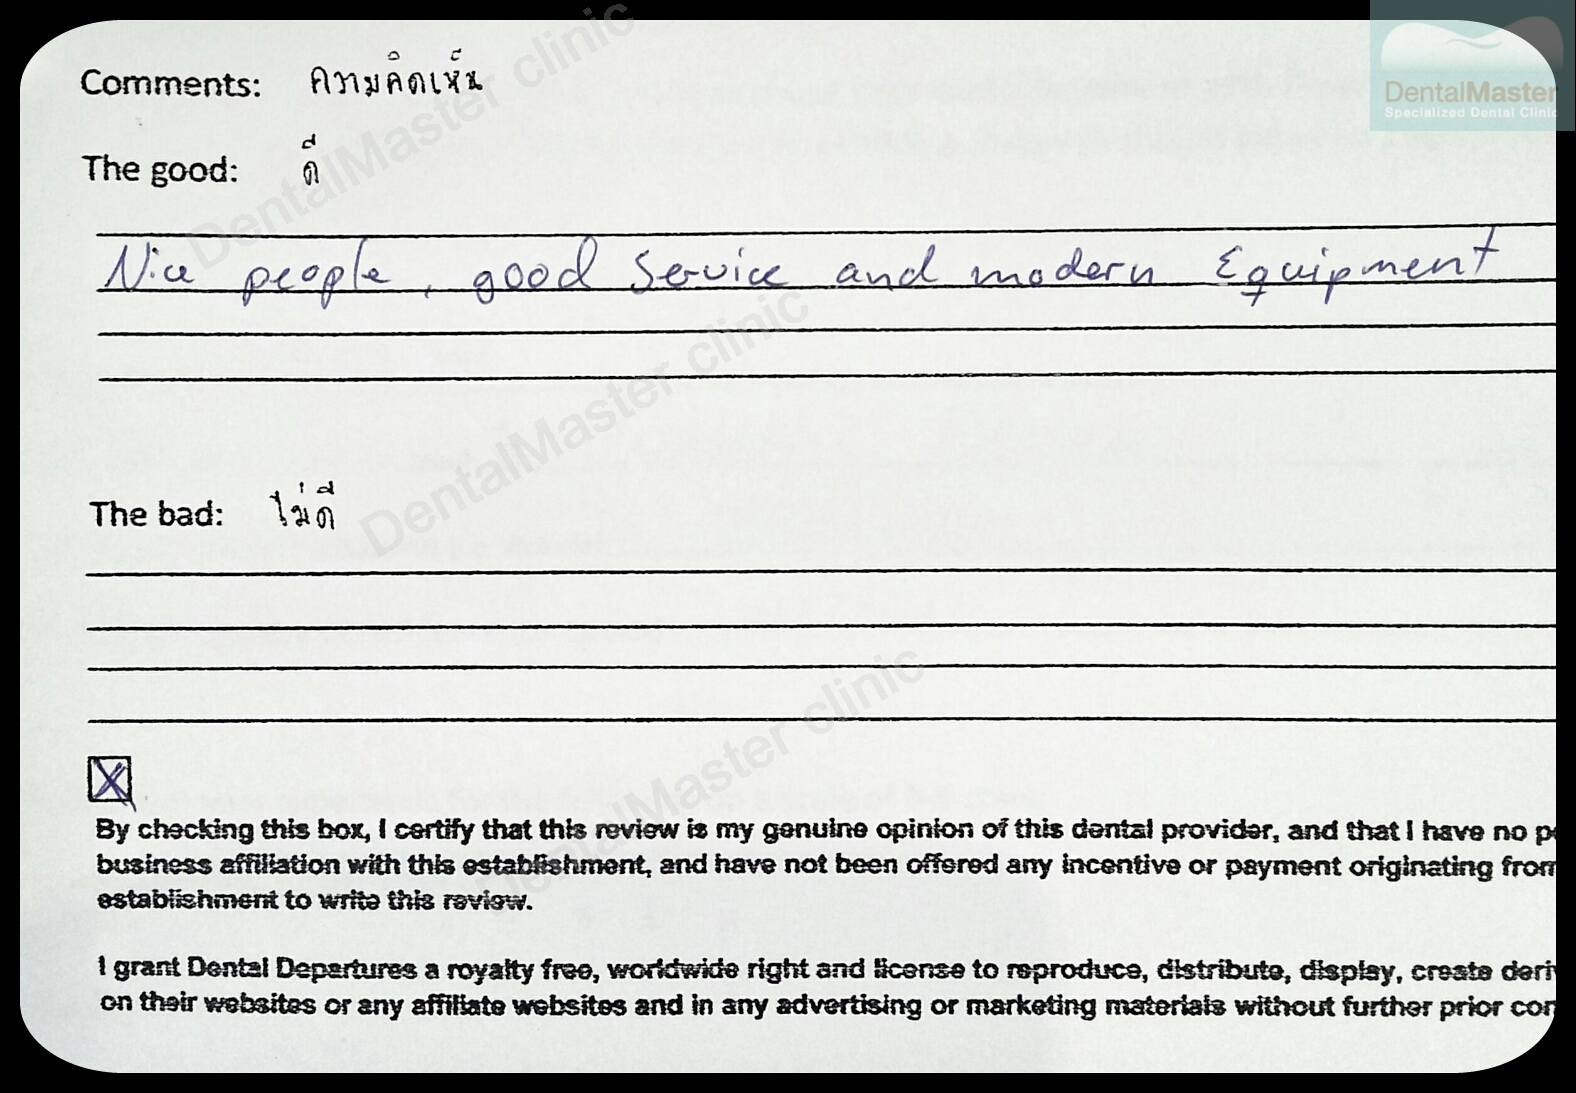 DentalMaster
Specialized Dental Clinic
Comments: ความคิดเห็น
The good: ดี
Nice people, good Service and modern Equipment
The bad: ไม่ดี
By checking this box, I certify that this review is my genuine opinion of this dental provider, and that I have no
business affiliation with this establishment, and have not been offered any incentive or payment originating from
establishment to write this review.
I grant Dental Departures a royalty free, worldwide right and license to reproduce, distribute, display, create
on their websites or any affiliate websites and in any advertising or marketing materials without further prior
DentalMaster clinic
DentalMaster clinic
DentalMaster clinic